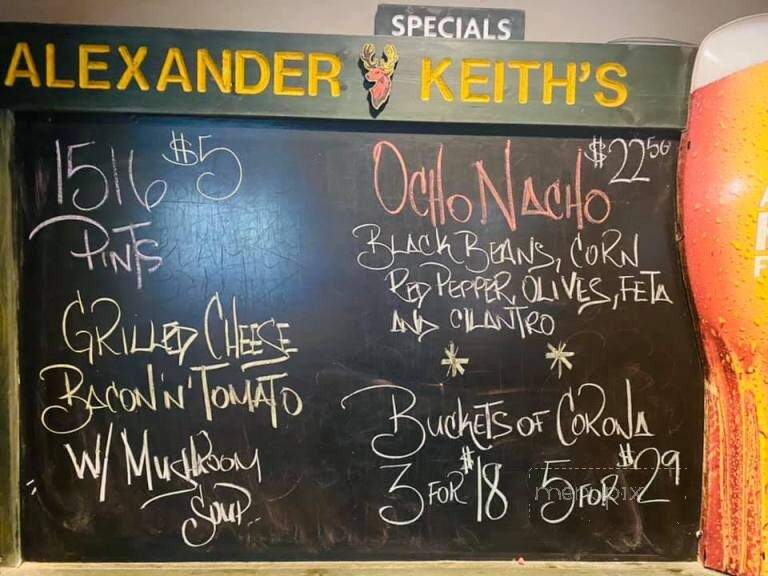 SPECIALS
ALEXANDER KEITH'S
1516 $5
PINTS
GRILLED CHEESE
BACON 'N' TOMATO
W/ MUSHROOM
SOUP
OCHO NACHO $22.50
BLACK BEANS, CORN
RED PEPPER, OLIVES, FETA
AND CILANTRO
* *
BUCKETS OF CORONA
3 FOR $18 5 FOR $29
menupix